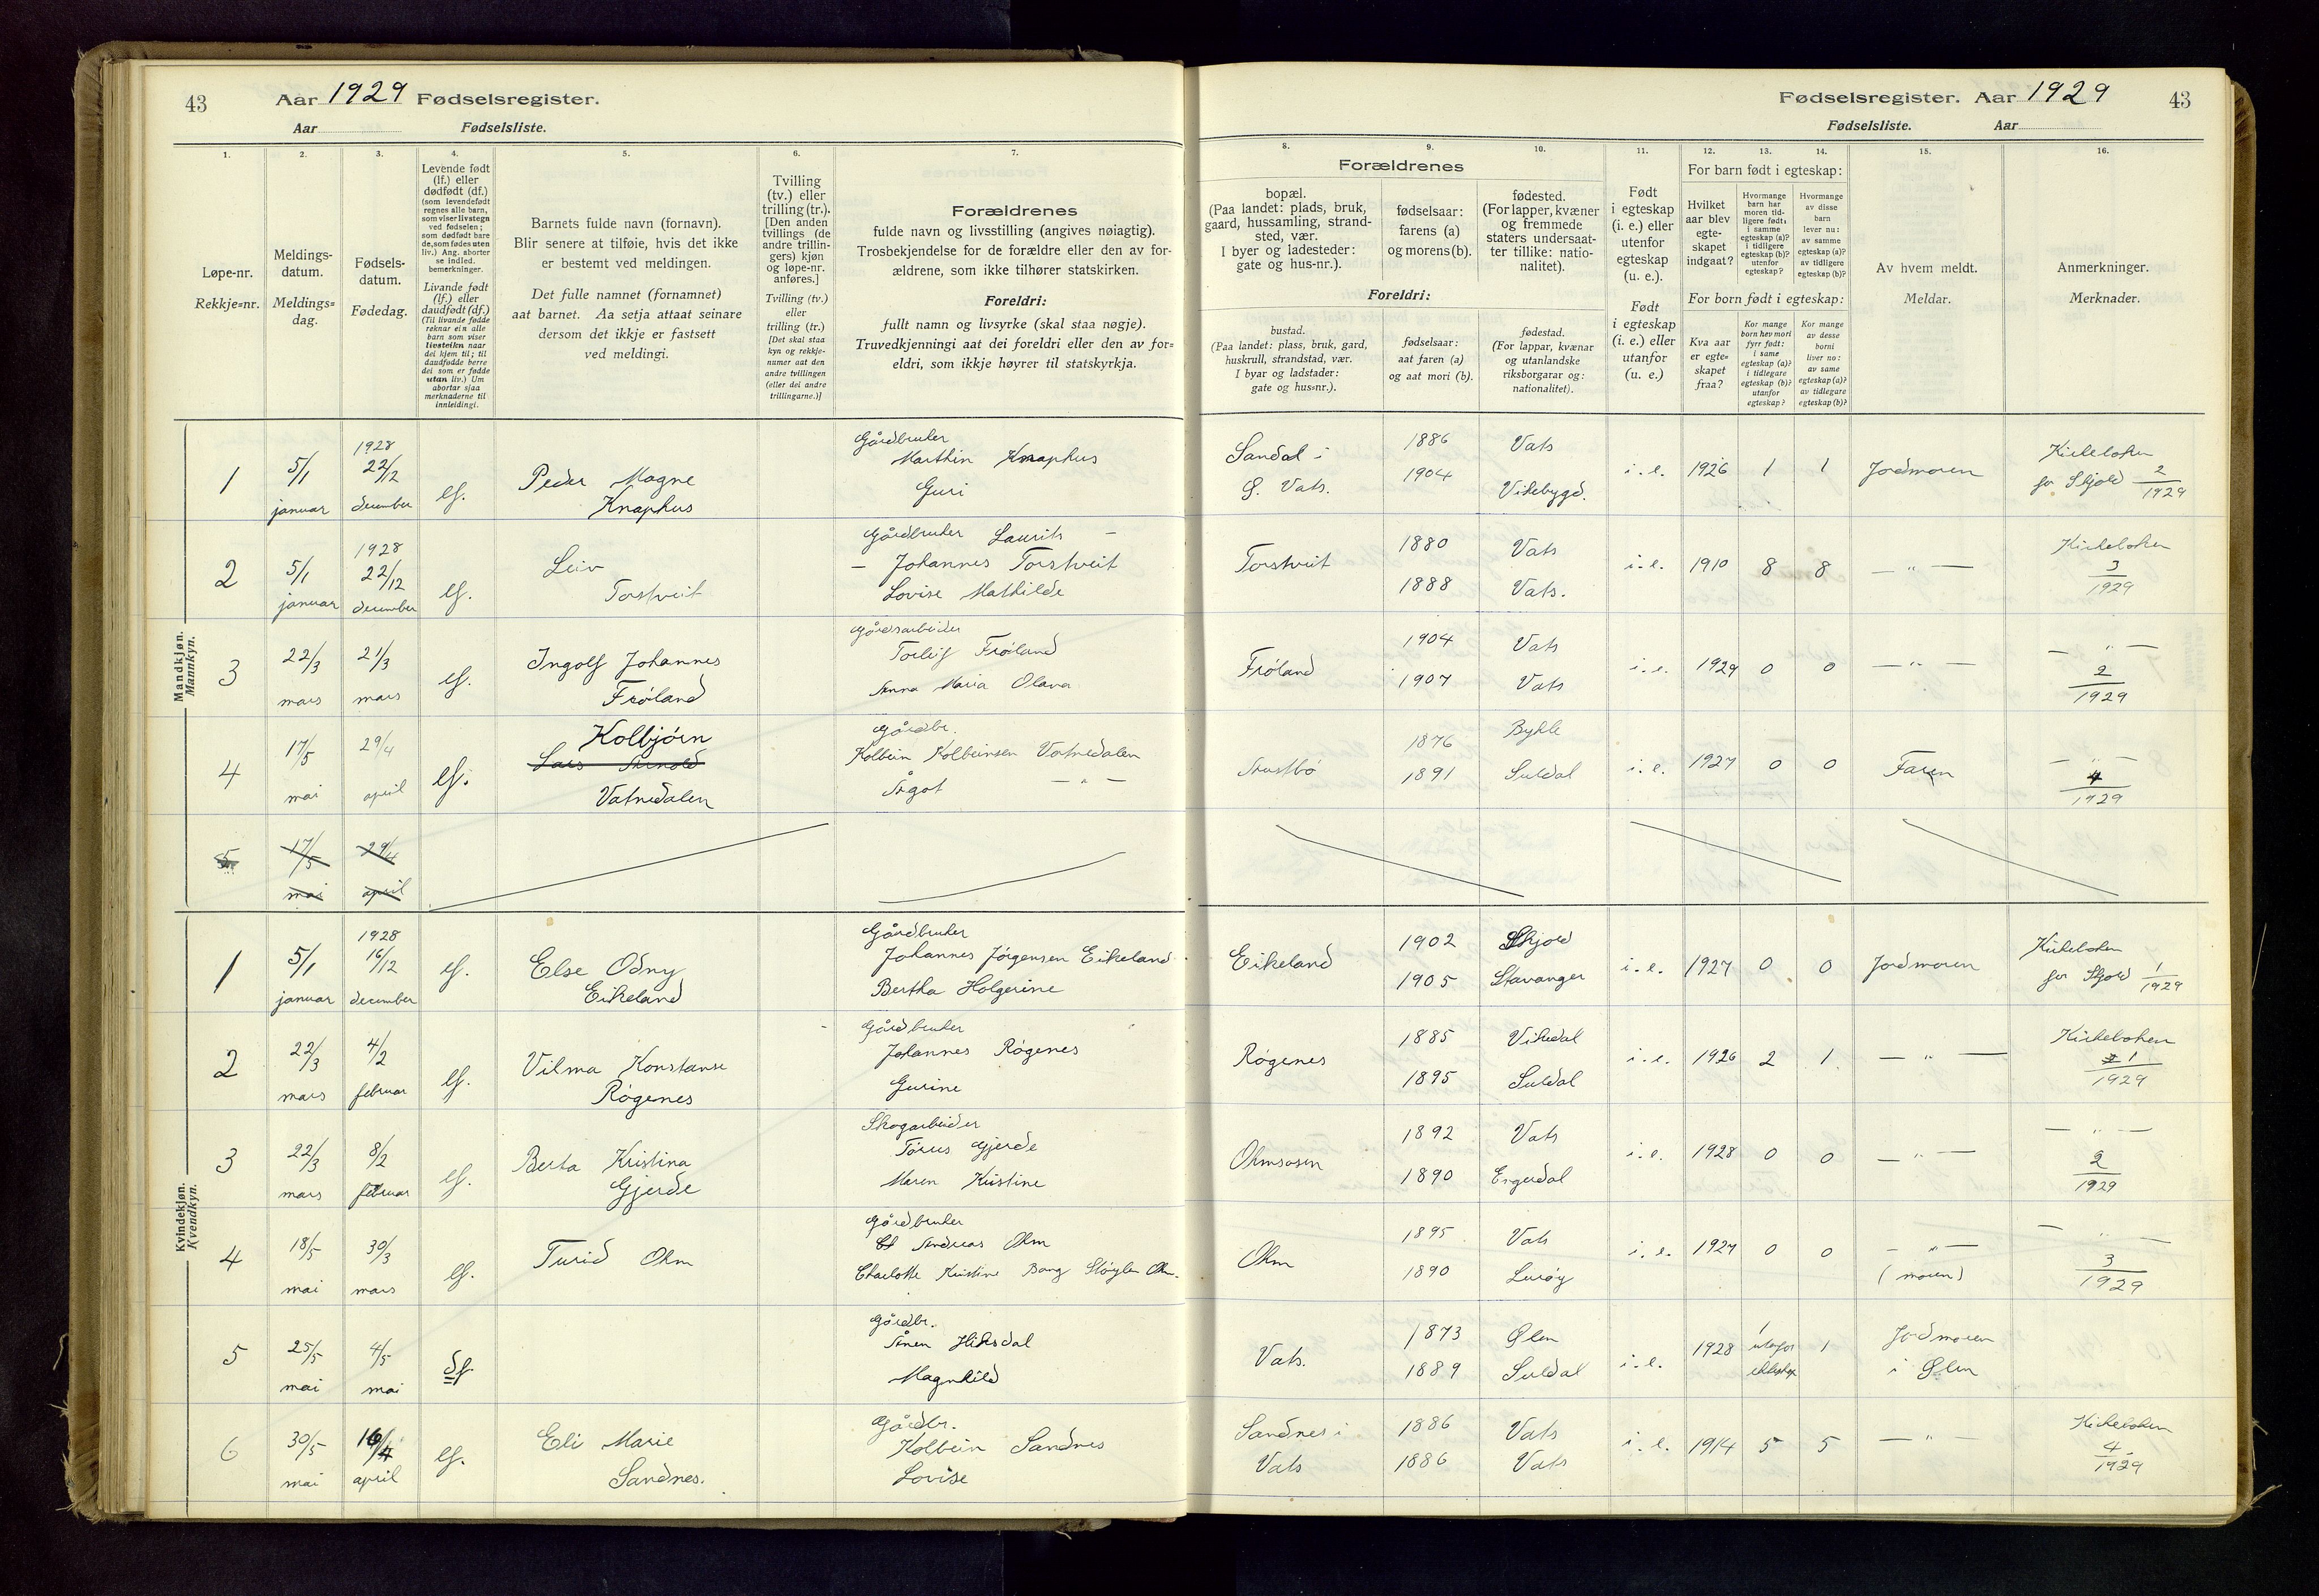 43 Aar 1929 Fødselsregister.
Aar Fødselsliste.
Fødselsregister. Aar 1929 43
Fødselsliste. Aar
1.
Løpe-nr.
Rekkje=nr.
2.
Meldings-
datum.
Meldings=
dag.
3.
Fødsels-
datum.
Fødedag.
4.
Levende født
(lf.) eller
dødfødt (df.)
(som levendefødt
regnes alle barn,
som viser livstegn
ved fødselen;
som dødfødt bare
de, som fødes uten
liv.) Ang. aborter
se indled.
bemerkninger.
Livande født
(lf.) eller
daudfødt (df.)
(Til livande fødde
reknar ein alle
barn som viser
livsteikn naar
dei kjem til; til
daudfødde berre
dei som er fødde
utan liv.) Um
abortar sjaa
merknaderne til
innleidingi.
5.
Barnets fulde navn (fornavn).
Blir senere at tilføie, hvis det ikke
er bestemt ved meldingen.
Det fulle namnet (fornamnet)
aat barnet. Aa setja attaat seinare
dersom det ikkje er fastsett
ved meldingi.
6.
Tvilling
(tv.) eller
trilling (tr.).
[Den anden
tvillings (de
andre trillin-
gers) kjøn
og løpe-nr.
anføres.]
Tvilling (tv.)
eller
trilling (tr.)
[Det skal staa
kyn og rekkje-
numer aat den
andre tvillingen
(eller dei andre
trillingarne.)]
7.
Forældrenes
fulde navn og livsstilling (angives nøiagtig).
Trosbekjendelse for de forældre eller den av for-
ældrene, som ikke tilhører statskirken.
Foreldri:
fullt namn og livsyrke (skal staa nøgje).
Truvedkjenningi aat dei foreldri eller den av for=
eldri, som ikkje høyrer til statskyrkja.
8. 9. 10.
Forældrenes
bopæl.
(Paa landet: plads, bruk,
gaard, hussamling, strand-
sted, vær.
I byer og ladesteder:
gate og hus-nr.).
fødselsaar:
farens (a)
og morens (b).
fødested.
(For lapper, kvæner
og fremmede
staters undersaat-
ter tillike: natio-
nalitet).
Foreldri:
bustad.
(Paa landet: plass, bruk, gard,
huskrull, strandstad, vær.
I byar og ladstader:
gate og hus=nr.).
fødselsaar:
aat faren (a)
og aat mori (b).
fødestad.
(For lappar, kvænar
og utanlandske
riksborgarar og:
nationalitet).
11.
Født
i egteskap
(i. e.) eller
utenfor
egteskap
(u. e.).
Født
i egteskap
(i. e.) eller
utanfor
egteskap
(u. e.)
12. 13. 14.
For barn født i egteskap:
Hvilket
aar blev
egte-
skapet
indgaat?
Hvormange
barn har
moren tid-
ligere født:
i samme
egteskap (a)?
i tidligere
egteskap (b)?
utenfor
egteskap?
Hvormange
av disse
barn
lever nu:
av samme
egteskap (a)?
av tidligere
egteskap (b)?
For born født i egteskap:
Kva aar
er egte=
skapet
fraa?
Kor mange
born hev mori
fyrr født:
i same
egteskap (a)?
i tidlegare
egteskap (b)?
utanfor
egteskap?
Kor mange
av desse
borni
liver no:
av same
egteskap (a)?
av tidlegare
egteskap (b)?
15.
Av hvem meldt.
Meldar.
16.
Anmerkninger.
Merknader.
Mandkjøn.
Mannkyn.
1 5/1 januar 1928 22/12 december lf. Peder Magne Knaphus
Gårdbruker
Marthin Knaphus
Guri
Sandal i Ø. Vats. 1886 1904 Vats Vikebygd. i. e. 1926 1 1 Jordmoren Kirkeboken for Skjold 2/1929
2 5/1 januar 1928 22/12 december lf. Leiv Torstveit
Gårdbruker Laurits -
- Johannes Torstveit
Lovise Mathilde
Torstveit 1880 1888 Vats Vats. i. e. 1910 8 8 — " — Kirkeboken 3/1929
3 22/3 mars 21/3 mars lf. Ingolf Johannes Frøland
Gårdsarbeider
Torleif Frøland
Anna Maria Olava
Frøland 1904 1907 Vats Vats i. e. 1929 0 0 — " — — " — 2/1929
4 17/5 mai 29/4 april lf. Kolbjörn Lars Arnold Vatnedalen
Gårdbr.
Kolbein Kolbeinsen Vatnedalen
Ågot — " —
1876 1891 Bykle Suldal i. e. 1927 0 0 Faren — " — 4/1929
5 17/5 mai 29/4 april
Kvindekjøn.
Kvendkyn.
1 5/1 januar 1928 16/12 december lf. Else Odny Eikeland
Gårdbruker
Johannes Jørgensen Eikeland
Bertha Holgerine
Eikeland 1902 1905 Skjold Stavanger i. e. 1927 0 0 Jordmoren Kirkeboken for Skjold 1/1929
2 22/3 mars 4/2 februar lf. Vilma Konstanse Røgenes
Gårdbruker
Johannes Røgenes
Gurine
Røgenes 1885 1895 Vikedal Suldal i. e. 1926 2 1 — " — Kirkeboken 1/1929
3 22/3 mars 8/2 februar lf. Berta Kristina Gjerde
Skogarbeider
Tørres Gjerde
Maren Kristine
Ohmsosen 1892 1890 Vats i. e. 1928 0 0 — " — — " — 2/1929
4 18/5 mai 30/3 mars lf. Turid Ohm
Gårdbruker
Andreas Ohm
Charlotte Kristine Bang Støylen Ohm.
Ohm 1895 1890 Vats Lurøy i. e. 1927 0 0 — " — (moren) — " — 3/1929
5 25/5 mai 4/5 mai df.
Gårdbr.
Ånen Hiksdal
Magnhild
Vats. 1873 1889 Ølen Suldal i. e. 1928 1 utafor 1 Jordmoren i Ølen
6 30/5 mai 16/4 april lf. Eli Marie Sandnes.
Gårdbr.
Kolbein Sandnes
Lovise
Sandnes i Vats 1886 1886 Vats Vats i. e. 1914 5 5 — " — Kirkeboken 4/1929